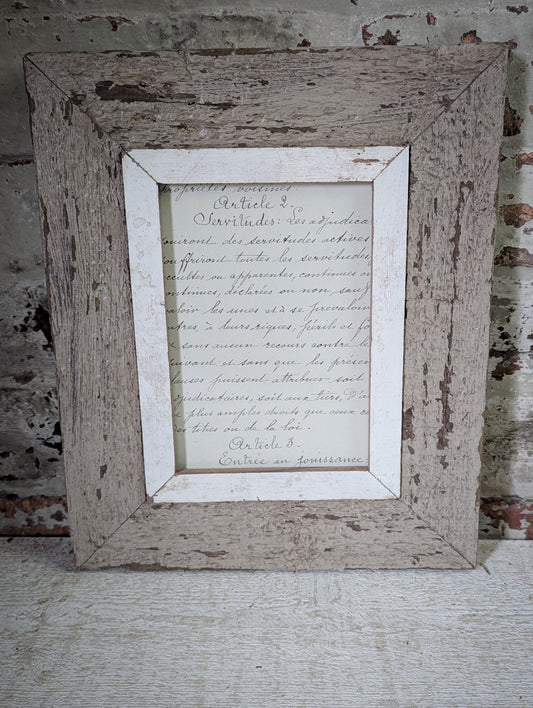 propriétés voisines.
Article 2.
Servitudes: Les adjudica
ouiront des servitudes actives
ouffriront toutes les servitudes,
ccultes ou apparentes, continues o
ntinues, déclarées ou non, sauf
aloir les unes et à se prévaloir
utres à leurs risques, périls et fo
e sans aucun recours contre le
uivant et sans que les présen
lauses puissent attribuer soit
djudicataires, soit aux tiers, d'a
e plus amples droits que ceux r
des titres ou de la loi.
Article 3.
Entrée en jouissance.